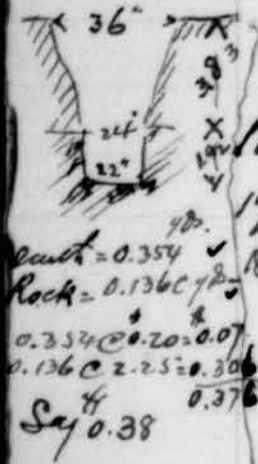 36"
3.83
24"
22"
yds.
Earth = 0.354 ✓
Rock = 0.136 c yds ✓
0.354 @ $0.20 = $0.07
0.136 @ 2.25 = 0.306
0.376
Say $ 0.38